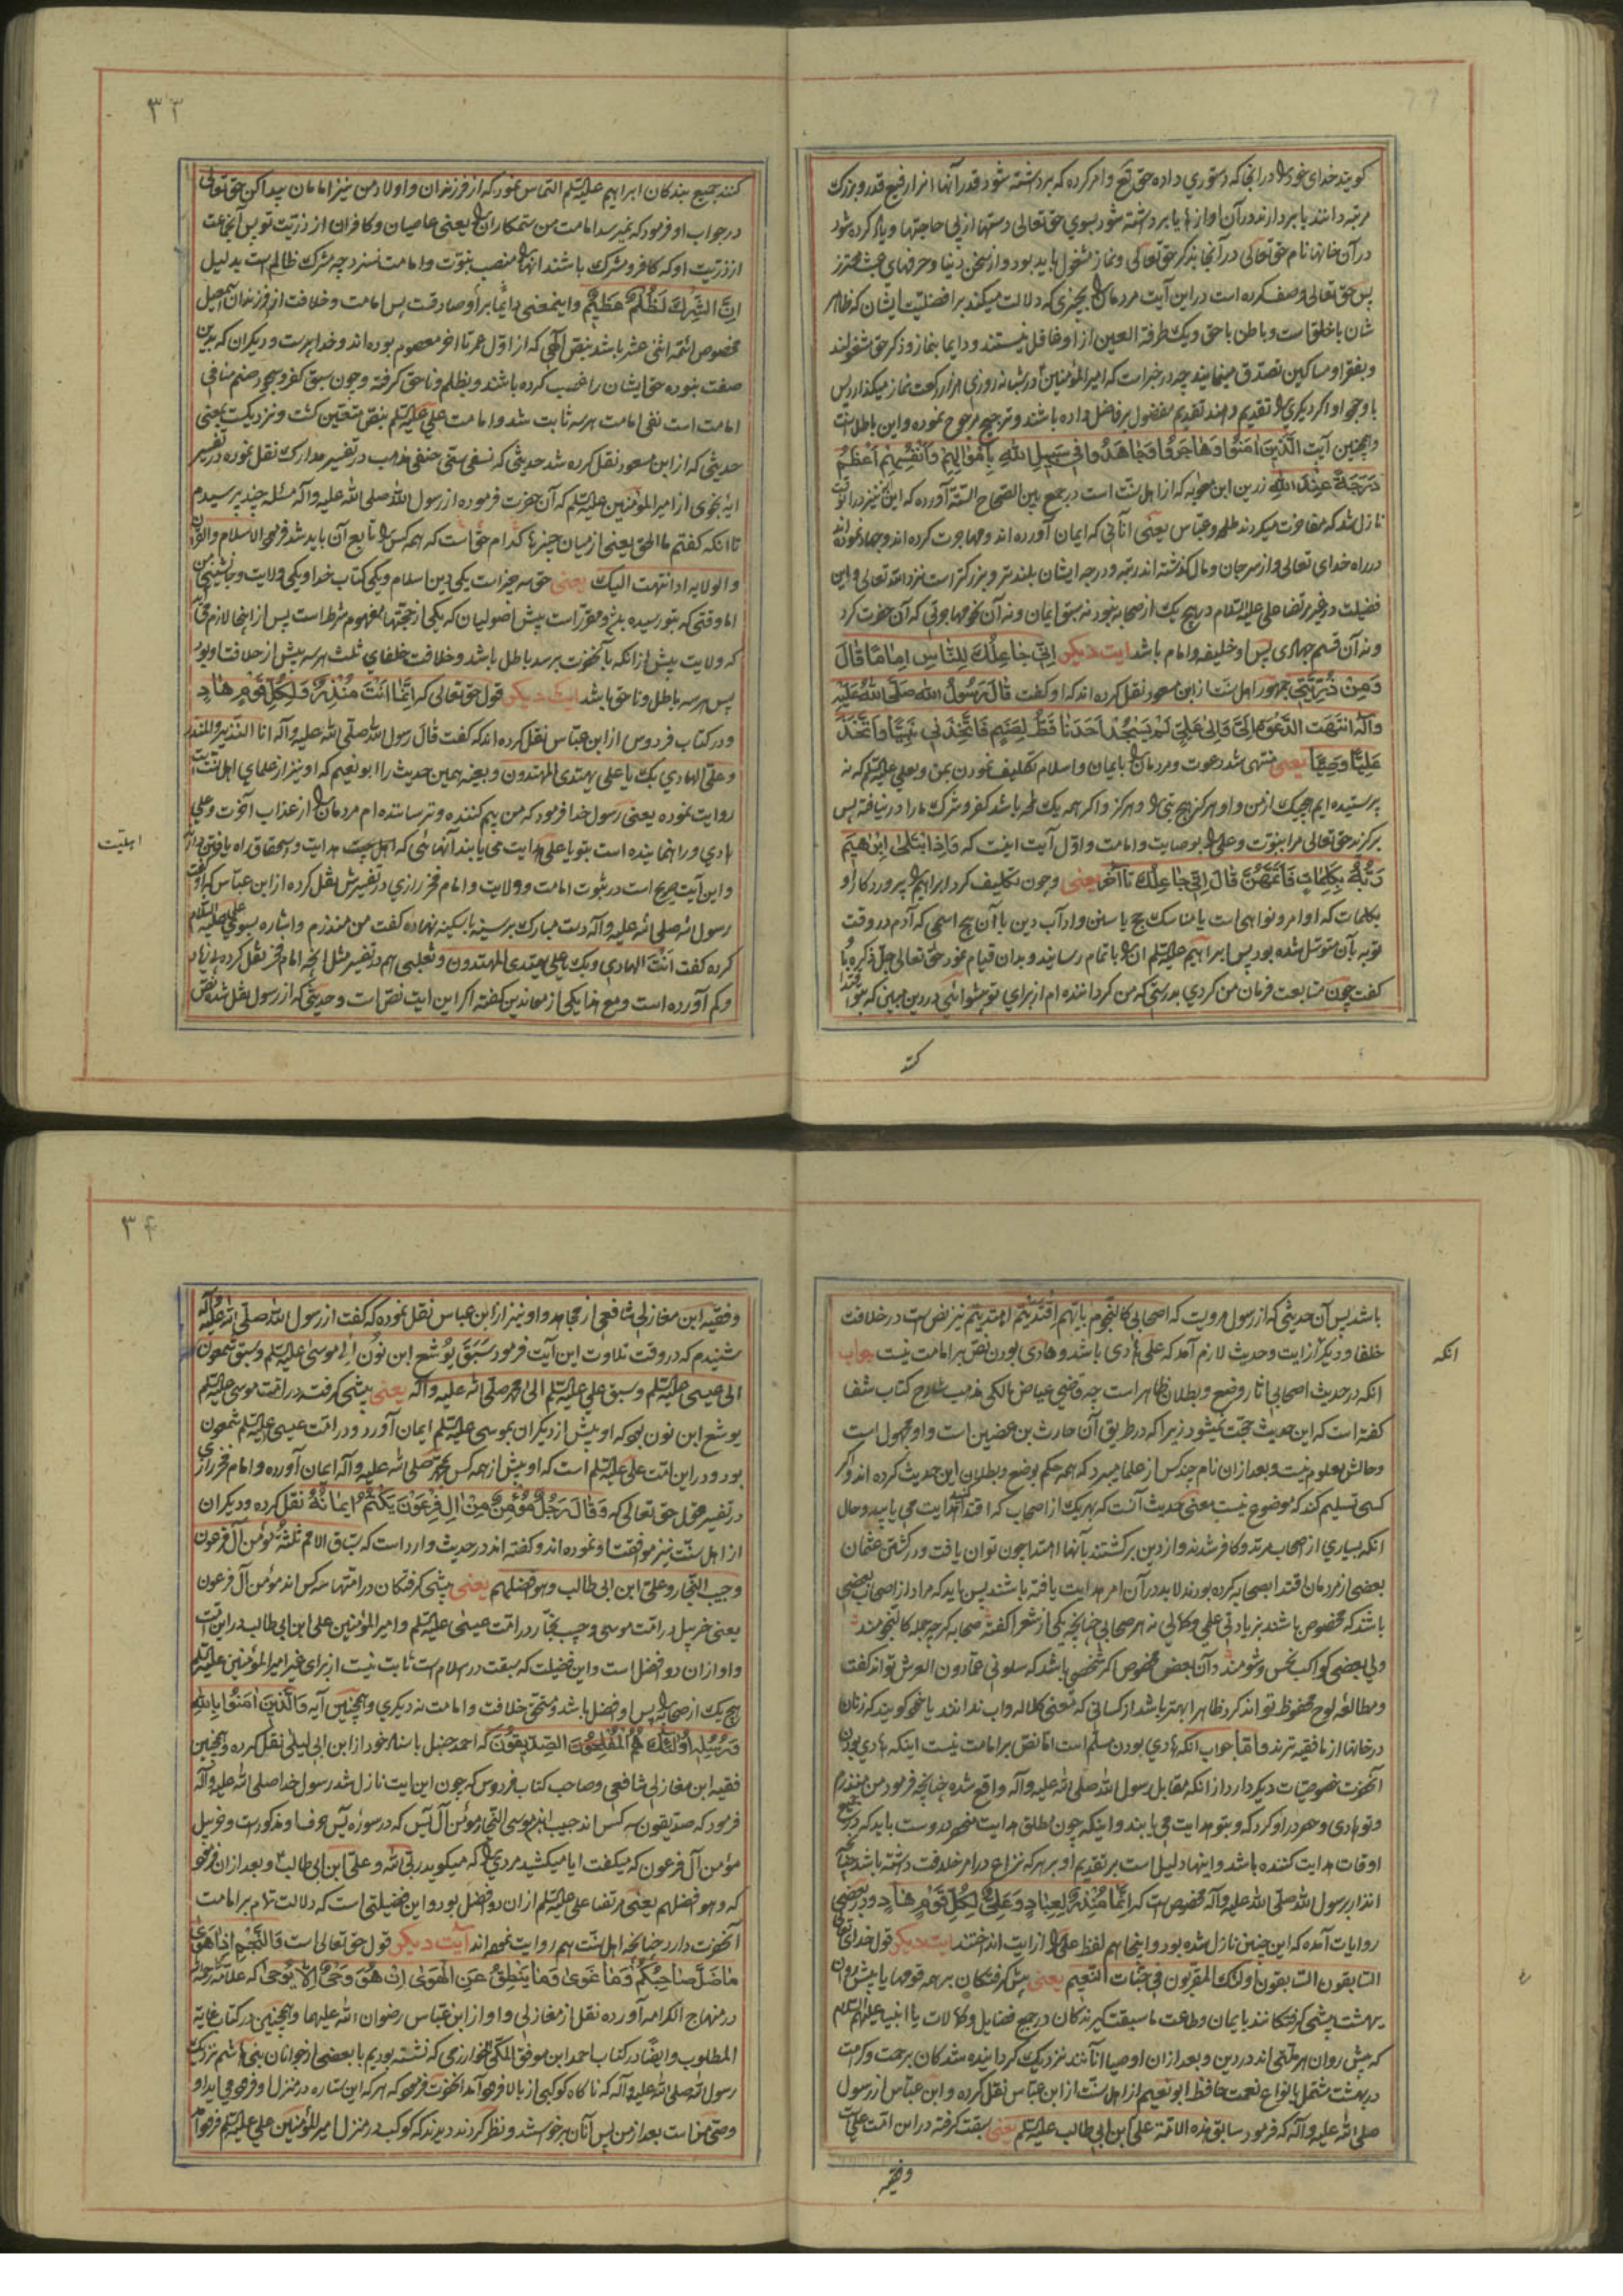 کویند خدای خود را در انجا که دستوری داده حق تع وامر کرده که برداشته شود قدر آنها انرا رفیع قدر و بزرک
مرتبه دانند یا بردارند در آن اوازها یا برداشته شود بسوی حق تعالی دستها از پی حاجتها ویاد کرده شود
در آن خانها نام حق تعالی در آنجا بذکر حق تعالی ونماز مشغول باید بود واز سخن دنیا وحرفهای عبث محترز
پس حق تعالی وصف کرده است در این آیت مردمان را بچیزی که دلالت میکند بر افضلیت ایشان که ظاهر
شان با خلق است وباطن با حق ویک طرفة العین از او غافل نیستند ودایما بنماز وذکر حق مشغولند
وبفقرا ومساکین تصدق مینمایند چه در خبر است که امیر المؤمنین در شبانه روزی هزار رکعت نماز میکذارد پس
با وجود او اکر دیکری را تقدیم دهند تقدیم مفضول بر فاضل داده باشند وترجیح مرجوح نموده واین باطل است
وهمچنین آیت الَّذِینَ اٰمَنُوا وَهَاجَرُوا وَجَاهَدُوا فی سَبِیلِ اللّٰهِ بِاَمْوَالِهِمْ وَاَنْفُسِهِمْ اَعْظَمُ
دَرَجَةً عِنْدَ اللّٰهِ زرین ابن معویه که از اهل سنّت است در جمع بین الصحاح الستة آورده که این آیه نیز در آن وقت
نازل شد که مفاخرت میکردند طلحه وعباس یعنی آنانی که ایمان آورده اند ومهاجرت کرده اند وجهاد نموده اند
در راه خدای تعالی واز سر جان ومال کذشته اند رتبه ودرجه ایشان بلندتر وبزرکتر است نزد الله تعالی واین
فضیلت در غیر مرتضا علی علیه السلام در هیچ یک از صحابه نبود نه سبق ایمان ونه آن نحو مهاجرتی که آن حضرت کرد
ونه آن قسم جهادی پس او خلیفه وامام باشد ایت دیکر اِنّی جَاعِلُكَ لِلنَّاسِ اِمَامًا قَالَ
وَمِنْ ذُرِّیَّتِی جمهور اهل سنّت از ابن مسعود نقل کرده اند که او کفت قَالَ رَسُولُ اللّٰه صَلَّی اللّٰهُ عَلَیْهِ
وآلِهِ انْتَهَت الدَّعْوَةُ اِلَیَّ وَاِلیٰ عَلِیٍّ لَمْ یَسْجُدْ اَحَدُنَا قَطُّ لِصَنَمٍ فَاتَّخَذَنِی نَبِیًّا وَاتَّخَذَ
عَلِیًّا وَصِیًّا یعنی منتهی شد دعوت ومردمان را بایمان واسلام تکلیف نمودن بمن وبعلی علیه السلم که نه
پرستیده ایم هیچیک از من واو هرکز هیچ بتی را وهرکز واکر همه یک لمحه باشد کفر وشرک ما را در نیافته پس
برکزید حق تعالی مرا بنبوّت وعلی را بوصایت وامامت واوّل آیت اینست که وَاِذِ ابْتَلیٰ اِبْرٰهِیمَ
رَبُّهُ بِکَلِمَاتٍ فَاَتَمَّهُنَّ قَالَ اِنِّی جَاعِلُكَ تا آخر یعنی وچون تکلیف کرد ابراهیم را پروردکار او
بکلمات که اوامر ونواهی است یا مناسک حج یا سنن وآداب دین با آن پنج اسمی که آدم در وقت
توبه بآن متوسّل شده بود پس ابراهیم علیه السلم انها را باتمام رسانید وبدان قیام نمود حق تعالی جلّ ذکره با او
کفت چون متابعت فرمان من کردی بدرستی که من کرداننده ام از برای تو پیشوائی در دین مبین که بتو اقتدا
کنند

۳۳
کنند جمیع بندکان ابراهیم علیه السلم التماس نمود که از فرزندان واولاد من نیز امامان پیدا کن حق تعالی
در جواب او فرمود که نمیرسد امامت من ستمکاران را یعنی عاصیان وکافران از ذرّیت تو پس انجماعت
از ذرّیت او که کافر ومشرک باشند انها را منصب نبوّت وامامت نسزد چه مشرک ظالم است بدلیل
اِنَّ الشِّرْكَ لَظُلْمٌ عَظِیمٌ واینمعنی دائما بر او صادقست پس امامت وخلافت از فرزندان اسمعیل
مخصوص ائمّه اثنی عشر باشد بنص الهی که از اوّل عمر تا اخر معصوم بوده اند وخدا پرست ودیکران که بدین
صفت نبوده حق ایشان را غصب کرده باشند وبظلم وناحق کرفته وچون سبق کفر وسجود صنم منافی
امامت است نفی امامت هر سه ثابت شد وامامت علی علیه السلم بنقص متعیّن کشت ونزدیکست بمعنی
حدیثی که از ابن مسعود نقل کرده شد حدیثی که نسفی ستی حنفی مذهب در تفسیر مدارک نقل نموده در تفسیر
ایه نجوی از امیر المؤمنین علیه السلم که آن حضرت فرموده از رسول الله صلی الله علیه وآله مسئله چند پرسیدم
تا انکه کفتم ما الحق یعنی از میان چیزها کدام حق است که همه کس را تابع آن باید شد فرمود الاسلام والقرآن
والولایه اذا انتهت الیک یعنی حق سه چیز است یکی دین اسلام ویکی کتاب خدا ویکی ولایت وجانشینی من
اما وقتی که بتو رسیده باشد ومقرّر است پیش اصولیان که یکی از حجّتها مفهوم شرط است پس از اینجا لازم می آید
که ولایت پیش از انکه بآنحضرت برسد باطل باشد وخلافت خلفای ثلث هر سه پیش از خلافت او بود
پس هر سه باطل وناحق باشد ایت دیکر قول حق تعالی که اِنَّمَا اَنْتَ مُنْذِرٌ وَلِکُلِّ قَوْمٍ هَادٍ
ودر کتاب فردوس از ابن عبّاس نقل کرده اند که کفت قال رسول الله صلّی الله علیه وآله انا النذیر والمنذر
وعلیّ الهادی بک یا علی یهتدی المهتدون وبعینه همین حدیث را ابو نعیم که او نیز از علمای اهل سنت است
روایت نموده یعنی رسول خدا فرمود که من بیم کننده وترساننده ام مردمان را از عذاب آخرت وعلی
هادی وراهنماینده است بتو یا علی هدایت می یابند آنهائی که اهل بیت هدایت واستحقاق راه یافتن دارند
اهلیّت
واین آیت صریح است در ثبوت امامت وولایت وامام فخر رازی در تفسیرش نقل کرده از ابن عباس که او کفت
رسول الله صلی الله علیه وآله دست مبارک بر سینه با سکینه نهاده کفت من منذرم واشاره بسوی علی علیه السلام
کرده کفت اَنْتَ الهادی وبک یا علی یهتدی المهتدون وثعلبی هم در تفسیر مثل آنچه امام فخر نقل کرده بی زیاد
وکم آورده است ومع هذا یکی از معاندین کفته اکر این ایت نص است وحدیثی که از رسول نقل شده نص

باشد پس آن حدیثی که از رسول مرویست که اصحابی کالنّجوم بایّهم اقتدیتم اهتدیتم نیز نص است در خلافت
خلفا ودیکر از ایت وحدیث لازم آمد که علی هادی باشد وهادی بودن نصّ بر امامت نیست جواب
انکه
انکه در حدیث اصحابی اثار وضع وبطلان ظاهر است چه قاضی عیاض مالکی مذهب شارح کتاب شفا
کفته است که این حدیث حجّت نمیشود زیرا که در طریق آن حارث بن غضین است واو مجهول است
وحالش معلوم نیست وبعد ازان نام چند کس از علما میبرد که همه حکم بوضع وبطلان این حدیث کرده اند واکر
کسی تسلیم کند که موضوع نیست معنی حدیث آنست که بهر یک از اصحاب که اقتدا کنید هدایت می یابید وحال
انکه بسیاری از اصحاب مرتد وکافر شدند واز دین برکشتند بآنها اهتدا چون توان یافت ودر کشتن عثمان
بعضی از مردمان اقتدا بصحابه کرده بودند لابد در آن امر هدایت یافته باشند پس باید که مراد از اصحاب بعضی
باشند که مخصوص باشند بزیادتی علمی وکمالی نه هر صحابی چنانچه یکی از شعرا کفته صحابه کرچه جمله کالنّجومند
ولی بعضی کواکب نحس وشومند وآن بعض مخصوص اکر شخصی باشد که سلونی عمّا دون العرش تواند کفت
ومطالعۀ لوح محفوظ تواند کرد ظاهرا بهتر باشد از کسانی که معنی کلاله واب ندانند یا خود کویند که زنان
در خانها از ما فقیه ترند وامّا جواب انکه هادی بودن مسلّم است امّا نصّ بر امامت نیست اینکه هادی بودن
آنحضرت خصوصیّات دیکر دارد از انکه مقابل رسول الله صلی الله علیه وآله واقع شده چنانچه فرمود من منذرم
وتو هادی وحصر در او کرد که وبتو هدایت می یابند واینکه چون مطلق هدایت منحصر در وست باید که در جمیع
اوقات هدایت کننده باشد واینها دلیل است بر تقدیم او بر هر که نزاع در امر خلافت داشته باشد چنانچه
انذار برسول الله صلّی الله علیه وآله مخصوص است که اِنَّمَا مُنْذِرٌ لِعِبَادٍ وَعَلِیٌّ لِکُلِّ قَوْمٍ هَادٍ ودر بعضی
روایات آمده که این چنین نازل شده بود واینجا هم لفظ علی را از ایت انداختند ایت دیکر قول خدای تعالی
السّابقون السّابقون اولئک المقرّبون فی جنّات النّعیم یعنی پیش کرفتکان بر همه قومها یا پیش روان
بهشت پیشی کرفتکانند بایمان وطاعت یا سبقت کیرندکان در جمیع فضایل وکمالات یا انبیا علیهم السلام
که پیش روان هر ملّتی اند در دین وبعد ازان اوصیا آنانند نزدیک کردانیده شدکان برحمت وکرامت
در بهشت مشتمل بانواع نعمت حافظ ابو نعیم از اهل سنّت از ابن عبّاس نقل کرده وابن عبّاس از رسول
صلی الله علیه وآله که فرمود سابق هذه الامّة علی ابن ابی طالب علیه السلم یعنی سبقت کرفته در این امّت علی است
وفقیه

۳۴
وفقیه ابن مغازلی شافعی از مجاهد واو نیز از ابن عباس نقل نموده که کفت از رسول الله صلّی الله علیه وآله
شنیدم که در وقت تلاوت این آیت فرمود سَبَقَ یُوشع ابن نُون اِلی موسیٰ علیه السلم وسبق شمعون
الی عیسی علیه السلم وسبق علی علیه السلم الی محمد صلّی الله علیه وآله یعنی پیشی کرفت در امّت موسی علیه السلم
یوشع ابن نون بود که او پیش از دیکران بموسی علیه السلم ایمان آورد ودر امّت عیسی علیه السلم شمعون
بود ودر این امّت علی علیه السلم است که او پیش از همه کس بمحمد صلّی الله علیه وآله ایمان آورده وامام فخر رازی
در تفسیر قول حق تعالی که وَقَالَ رَجُلٌ مُؤْمِنٌ مِنْ اٰلِ فِرْعَوْنَ یَکْتُمُ اِیمَانَهُ نقل کرده ودیکران
از اهل سنّت نیز موافقت او نموده اند وکفته اند در حدیث وارد است که سبّاق الامم ثلثة مؤمن آل فرعون
وحبیب النّجار وعلیّ ابن ابی طالب وهو افضلهم یعنی پیشی کرفتکان در امّتها سه کس اند مؤمن آل فرعون
یعنی خربیل در امّت موسی وحبیب نجّار در امّت عیسی علیه السلم وامیر المؤمنین علی ابن ابی طالب در این امّت
واو از ان دو افضل است واین فضیلت که سبقت در اسلام است ثابت نیست از برای غیر امیر المؤمنین علیه السلم
هیچ یک از صحابه پس او افضل باشد ومستحق خلافت وامامت نه دیکری وهمچنین آیه وَالَّذِینَ اٰمَنُوا بِاللّٰهِ
وَرُسُلِهِ اُولٰئِكَ هُمُ الْمُفْلِحُونَ الصِّدِّیقُونَ که احمد حنبل باسناد خود از ابن ابی لیلی نقل کرده وهمچنین
فقیه ابن مغازلی شافعی وصاحب کتاب فردوس که چون این ایت نازل شد رسول خدا صلی الله علیه وآله
فرمود که صدّیقون سه کس اند حبیب ابن موسی النّجار مؤمن آل یس که در سورۀ یس موصوف ومذکور است وخربیل
مؤمن آل فرعون که میکفت ایا میکشید مردی را که میکوید ربّی الله وعلیّ ابن ابی طالب وبعد ازان فرمود
که وهو افضلهم یعنی مرتضا علی علیه السلم ازان دو افضل بود واین فضیلتی است که دلالت تمام بر امامت
آنحضرت دارد چنانچه اهل سنّت هم روایت نموده اند آیت دیکر قول حق تعالی است وَالنَّجْمِ اِذَا هَوَیٰ
مَا ضَلَّ صَاحِبُکُمْ وَمَا غَوَیٰ وَمَا یَنْطِقُ عَنِ الْهَوَیٰ اِنْ هُوَ اِلَّا وَحْیٌ یُوحیٰ که علامه رحمه الله
در منهاج الکرامه آورده نقل از مغازلی واو از ابن عبّاس رضوان الله علیهما وهمچنین در کتاب غایة
المطلوب وایضا در کتاب احمد ابن موفّق المکّی الخوارزمی که نشسته بودیم با بعضی از جوانان بنی هاشم نزدیک
رسول الله صلی الله علیه وآله که ناکاه کوکبی از بالا فرود آمد آنحضرت فرمود که هر که این ستاره در منزل او فرود می اید او
وصیّ منست بعد از من پس آنان برخواستند ونظر کردند دیدند که کوکب در منزل امیر المؤمنین علی علیه السلم فرود آمد